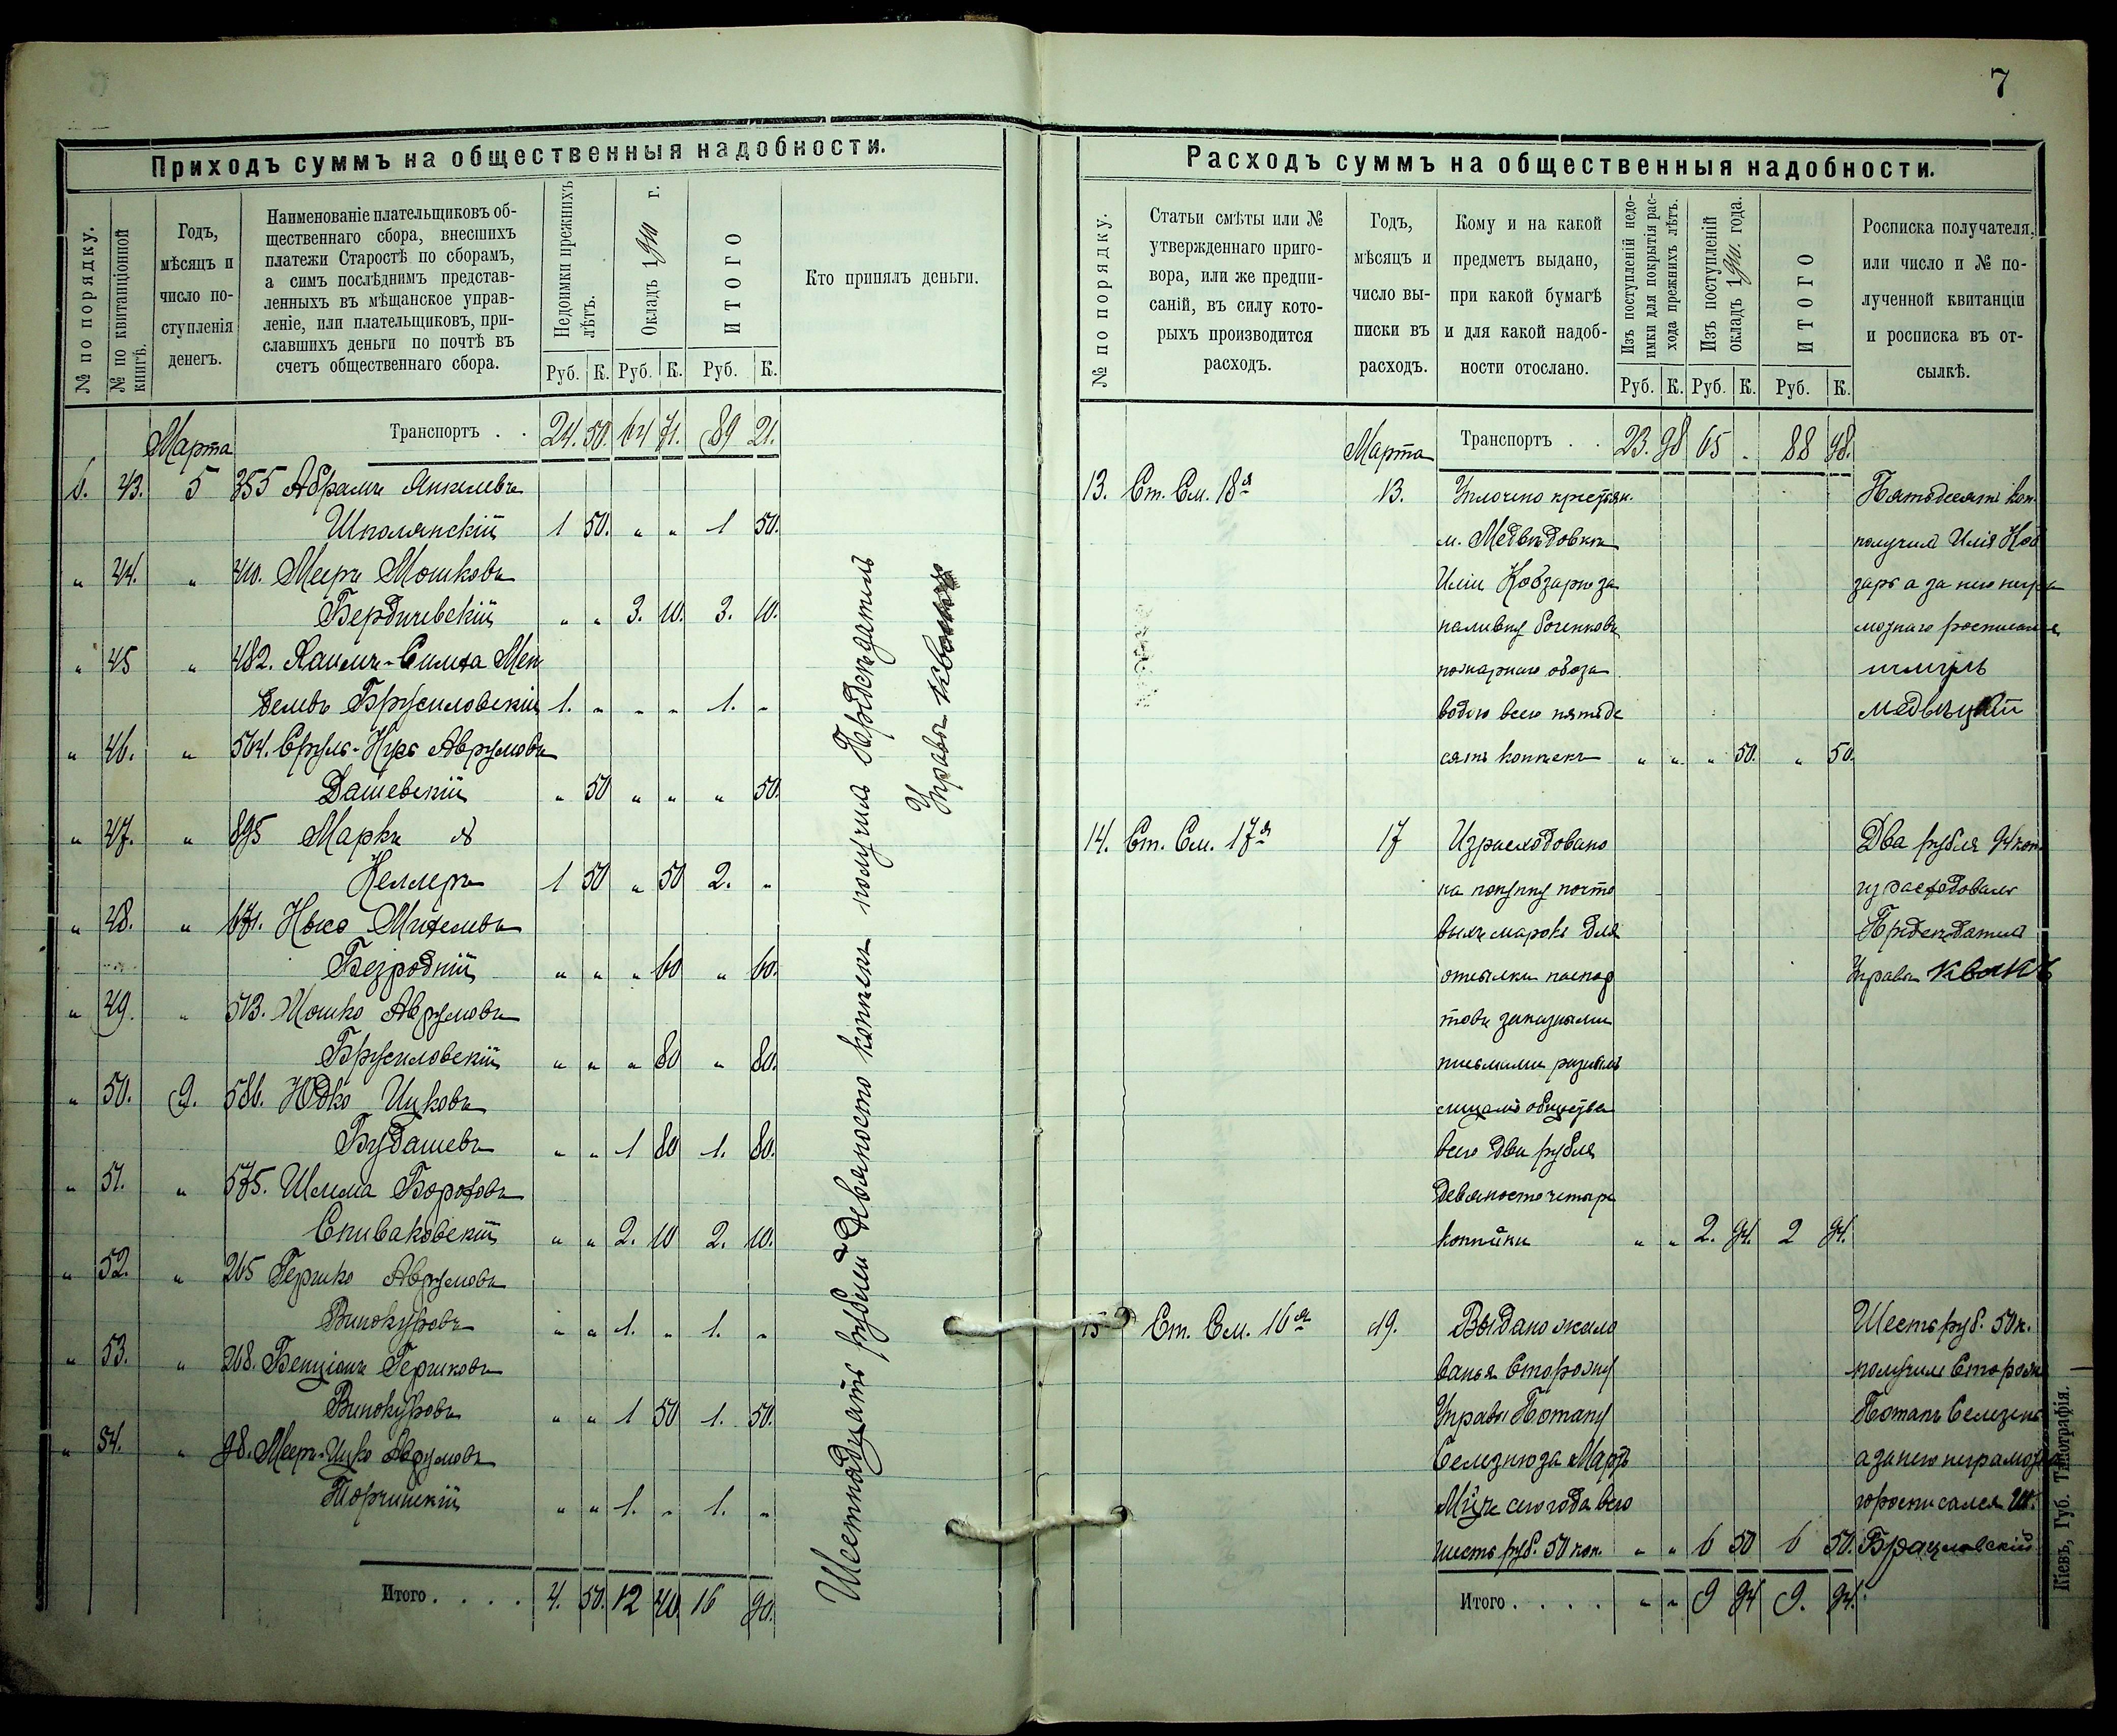 7
Приходъ суммъ на общественныя надобности.
№ по порядку.
№ по квитанціонной книгѣ.
Годъ,
мѣсяцъ и
число по-
ступленія
денегъ.
Наименованіе плательщиковъ об-
щественнаго сбора, внесшихъ
платежи Старостѣ по сборамъ,
а симъ послѣднимъ представ-
ленныхъ въ мѣщанское управ-
леніе, или плательщиковъ, при-
славшихъ деньги по почтѣ въ
счетъ общественнаго сбора.
Недоимки прежнихъ
лѣтъ.
Окладъ 1910 г.
ИТОГО
Кто принялъ деньги.
Руб. К. Руб. К. Руб. К.
Марта Транспортъ . . 24. 50. 64 71. 89 21.
6. 43. 5 355 Абрамъ Янкелевъ
Шполянскій 1 50. " " 1 50.
" 44. " 410. Мееръ Мошковъ
Бердичевскій " " 3. 10. 3. 10.
" 45 " 482. Хаимъ-Симха Мен
делевъ Брусиловскій 1. " " " 1. "
" 46. " 564. Сруль-Нухъ Аврумовъ
Дашевскій " 50 " " " 50.
" 47. " 895 Маркъ
Келлеръ 1 50 " 50 2. "
" 48. " 671. Ицко Михелевъ
Безродній " " " 60 " 60.
" 49. " 513. Мошко Аврумовъ
Брусиловскій " " " 80 " 80.
" 50. 9. 586. Юдко Ицковъ
Будашевъ " " 1 80 1. 80.
" 51. " 575. Шлема Борохов
Спиваковскій " " 2. 10 2. 10.
" 52. " 265 Гершко Аврумовъ
Винокуровъ " " 1. " 1. "
" 53. " 268. Бенціонъ Гершковъ
Винокуровъ " " 1 50 1. 50.
" 54. " 98. Мееръ-Ицко Аврумовъ
Торчинскій " " 1. " 1. "
Итого. . . . 4. 50. 12 40. 16 90.
Шестнадцать рублей девяносто копѣекъ получилъ Предсѣдатель
Управы
Расходъ суммъ на общественныя надобности.
№ по порядку.
Статьи смѣты или №
утвержденнаго приго-
вора, или же предпи-
саній, въ силу кото-
рыхъ производится
расходъ.
Годъ,
мѣсяцъ и
число вы-
писки въ
расходъ.
Кому и на какой
предметъ выдано,
при какой бумагѣ
и для какой надоб-
ности отослано.
Изъ поступленій недо-
имки для покрытія рас-
хода прежнихъ лѣтъ.
Изъ поступленій
окладъ 1910. года.
ИТОГО
Росписка получателя,
или число и № по-
лученной квитанціи
и росписка въ от-
сылкѣ.
Руб. К. Руб. К. Руб. К.
Марта Транспортъ . . 23. 98 65 . 88 98.
13. Ст. См. 18я 13. Уплочено крестьян. Пятьдесятъ коп.
м. Медвѣдовки получилъ Илія Коб
Иліи Кобзарю за зарь а за него негра
наливку боченковъ мотнаго росписался
пожарнаго обоза
водою всего пятьде Медвѣцкій
сятъ копѣекъ " " " 50. " 50.
14. Ст. См. 17я 17 Израсходовано Два рубля 94 коп.
на покупку почто израсходовалъ
выхъ марокъ для Предсѣдатель
отсылки паспор Управы Квакъ
товъ заказными
письмами разнымъ
лицамъ общества
всего два рубля
девяносто четыре
копѣйки " " 2. 94. 2 94.
15 Ст. См. 16я 19. Выдано жало Шесть руб. 50 к.
ванья Сторожу получилъ Сторожъ
Управы Потапу Потапъ Селезень
Селезню за Мартъ а за него неграмотна
М-цъ сего года всего го росписался Ш.
шесть руб. 50 коп. " " 6 50 6 50. Брацлавскій
Итого. . . . " " 9 94 9. 94.
Кіевъ, Губ. Типографія.